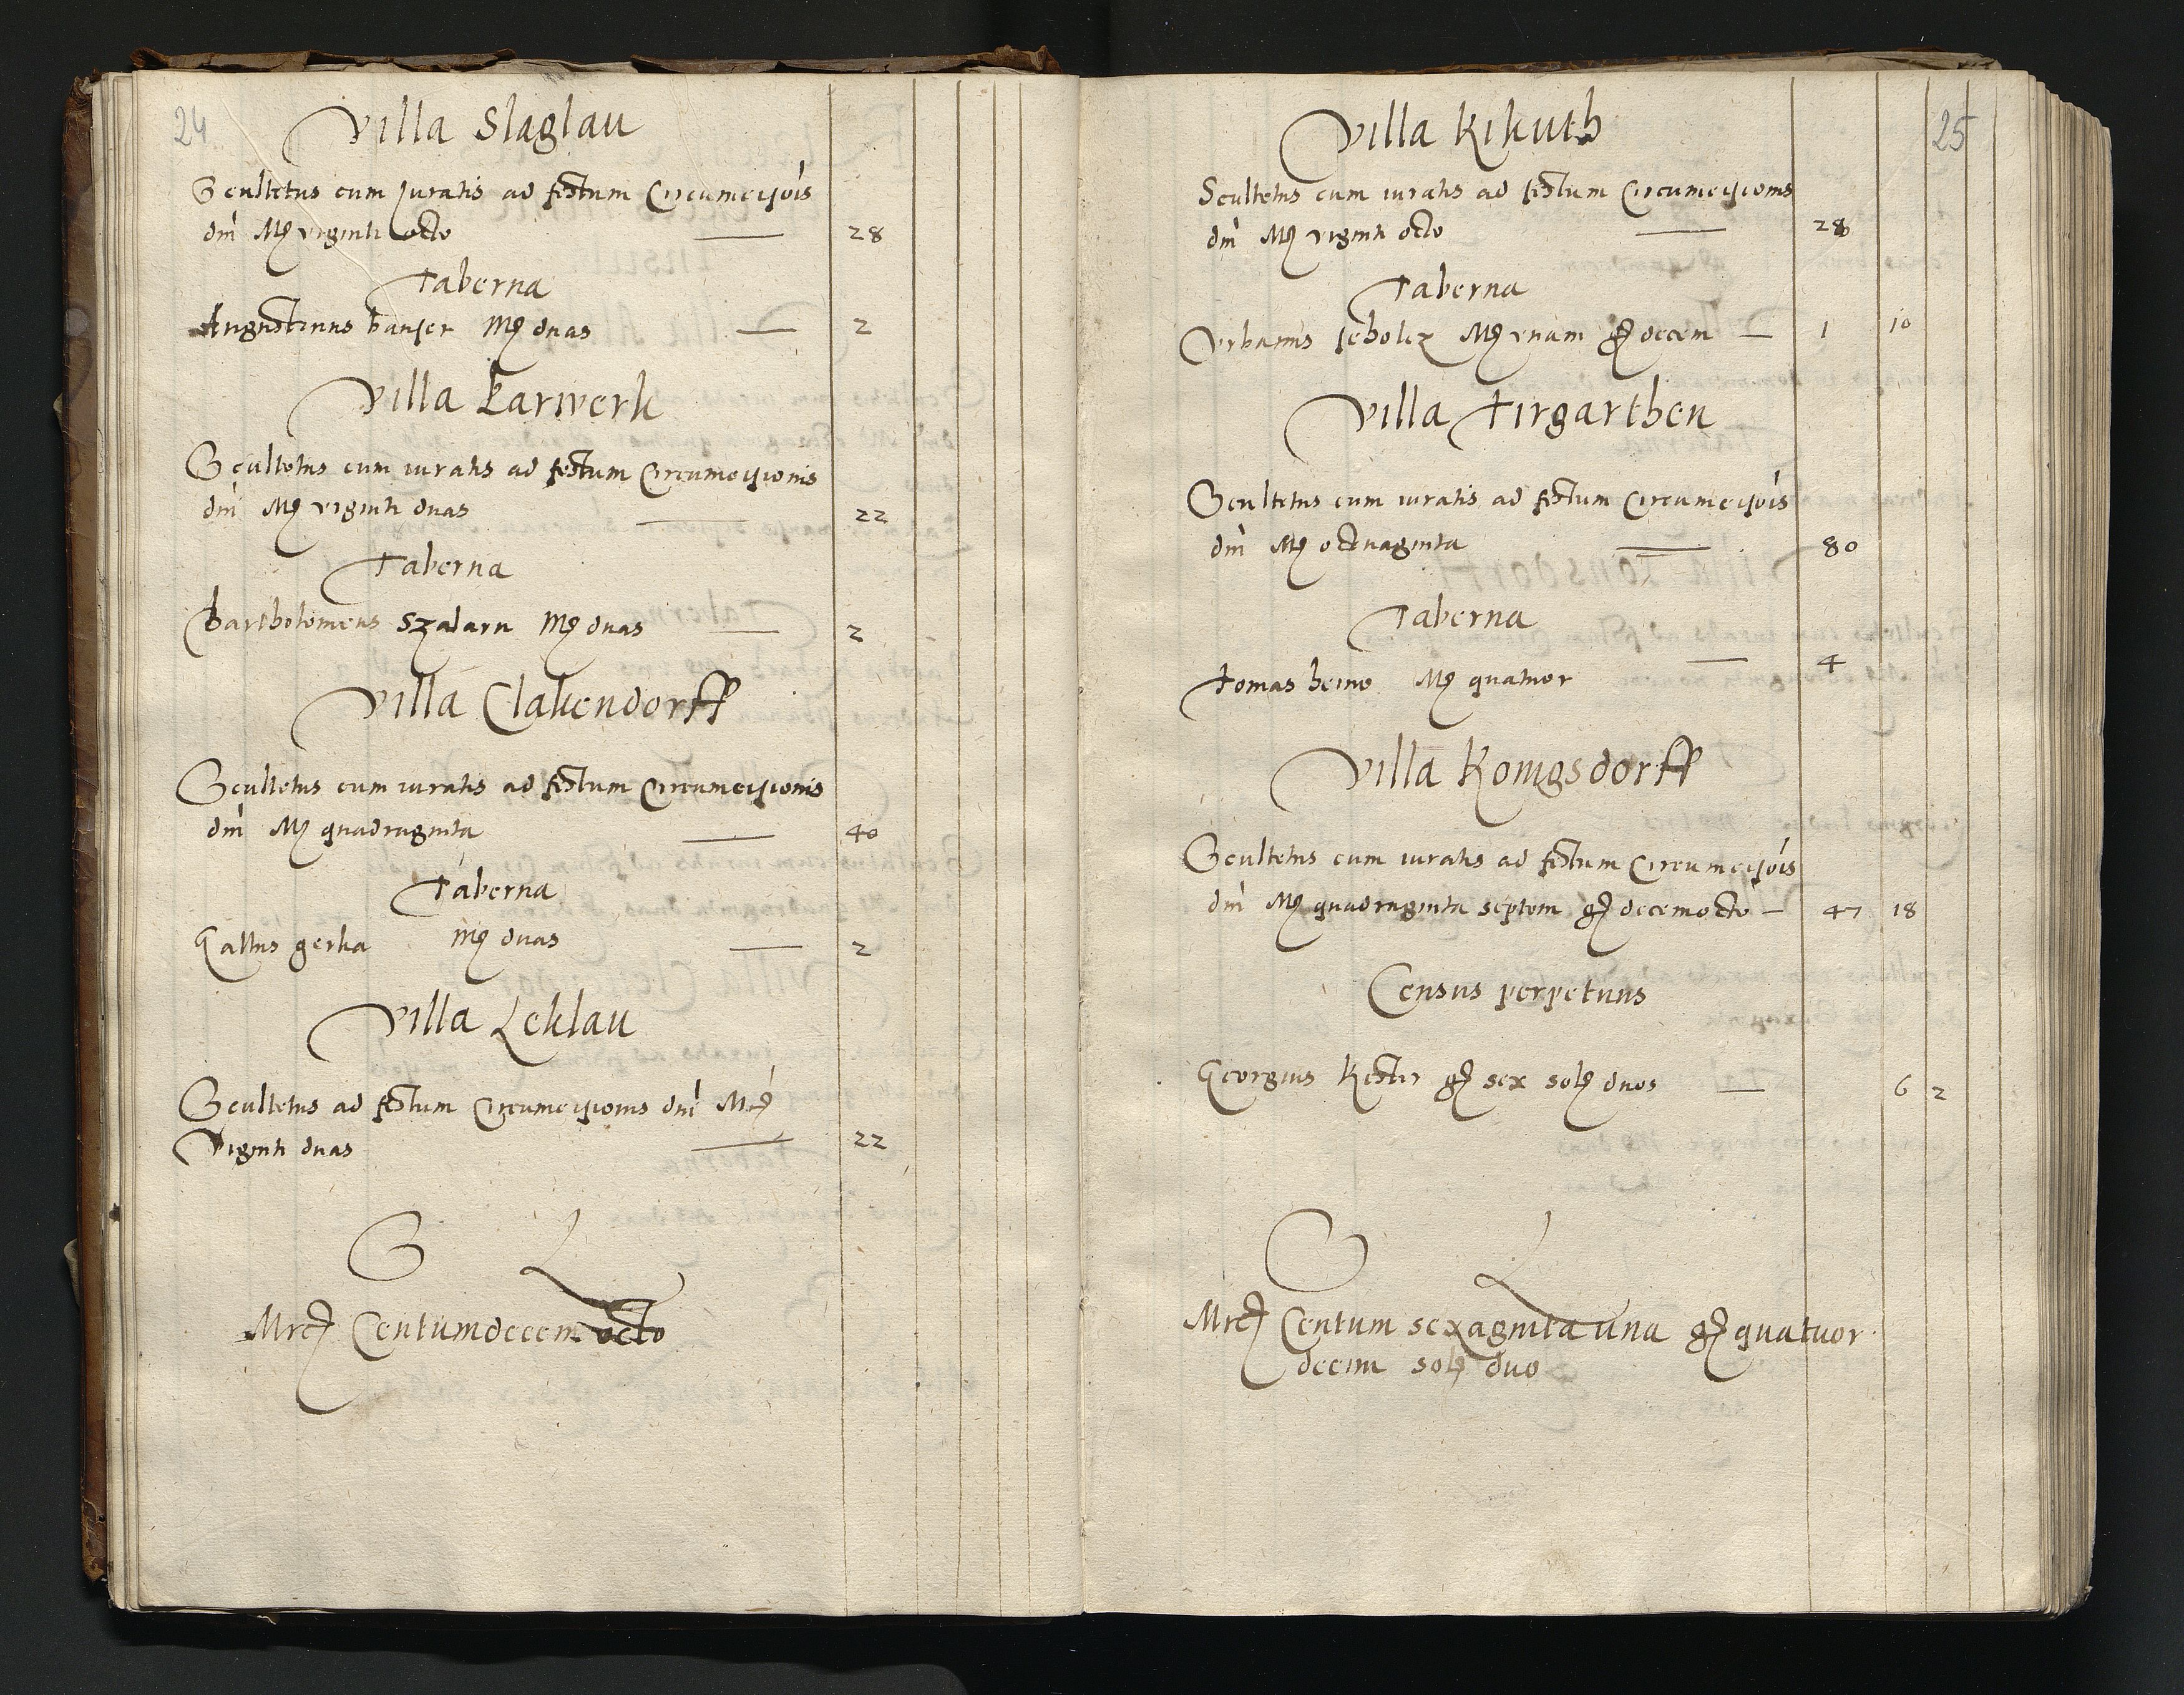 24
Villa Slaglau
Scultetus cum Juratis ad festum Circumcisiois
dni Mr viginti octo — 28
Taberna
Augustinus banser Mr duas — 2
Villa Karwerk
Scultetus cum iuratis ad festum Circumcisionis
dni Mr viginti duas — 22
Taberna
Bartholomeus Szalarn Mr duas — 2
Villa Clakendorff
Scultetus cum iuratis ad festum Circumcisionis
dni Mr quadraginta — 40
Taberna
Gallus gerka Mr duas — 2
Villa Leklau
Scultetus ad festum Circumcisionis dni Mrc
Viginti duas — 22
S L
Mrc Centumdecem octo
25
Villa Kikuth
Scultetus cum iuratis ad festum Circumcisionis
dni Mr viginti octo — 28
Taberna
Vrbanus scholcz Mr vnam gr decem — 1 10
Villa Tirgarthen
Scultetus cum iuratis ad festum Circumcisiois
dni Mr octuaginta — 80
Taberna
Tomas heino Mr quatuor — 4
Villa Konigsdorff
Scultetus cum iuratis ad festum Circumcisiois
dni Mr quadraginta septem gr decemocto — 47 18
Census perpetuus
Georgius Kester gr sex sol duos — 6 2
S L
Mrc Centum sexaginta una gr quatuor
decim sol duo